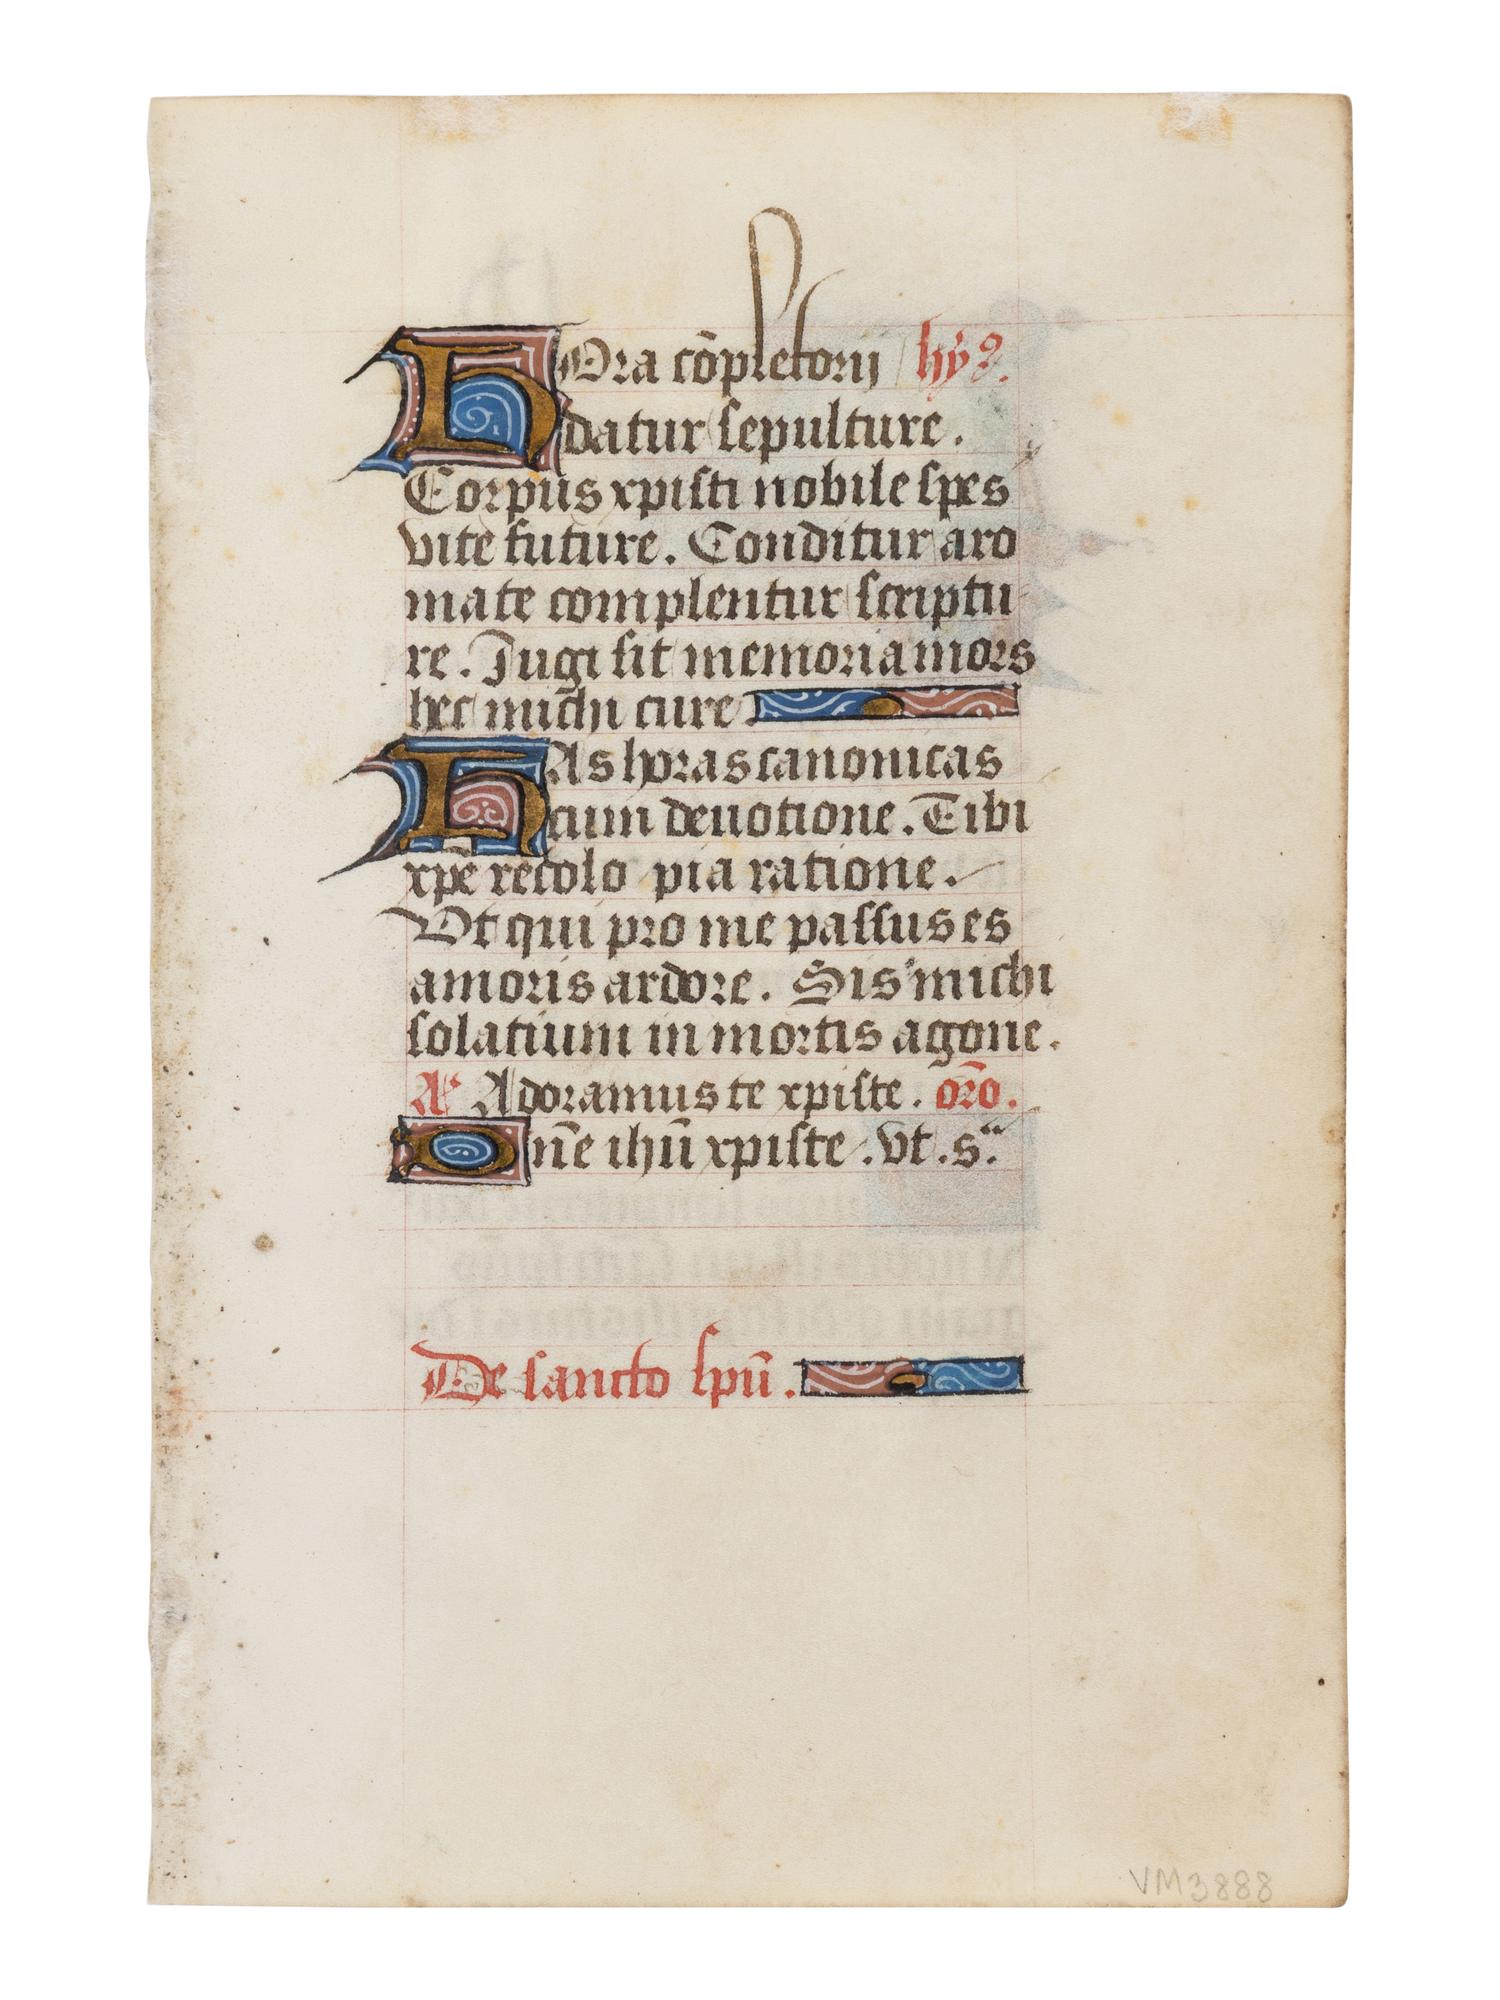 HOra cōpletorij hy9.
datur sepulture.
Corpus xpisti nobile spes
vite future. Conditur aro
mate complentur scriptu
re. Iugi sit memoria mors
hec michi cure
HAs horas canonicas
cum deuotione. Tibi
xpē recolo pia ratione.
Vt qui pro me passus es
amoris ardore. Sis michi
solatium in mortis agone.
A Adoramus te xpiste. orō.
Dn̄e ihū xpiste. vt. s.
De sancto spū.
VM3888